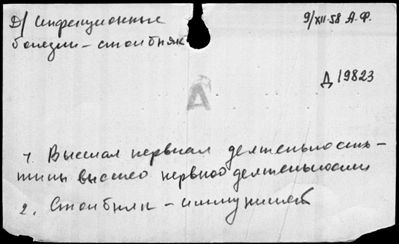 Д/ Инфекционные
болезни - столбняк
9/XII-58 А.Ф.
Д 19823
А
1. Высшая нервная деятельность-
типы высшей нервной деятельности
2. Столбняк - иммунитет